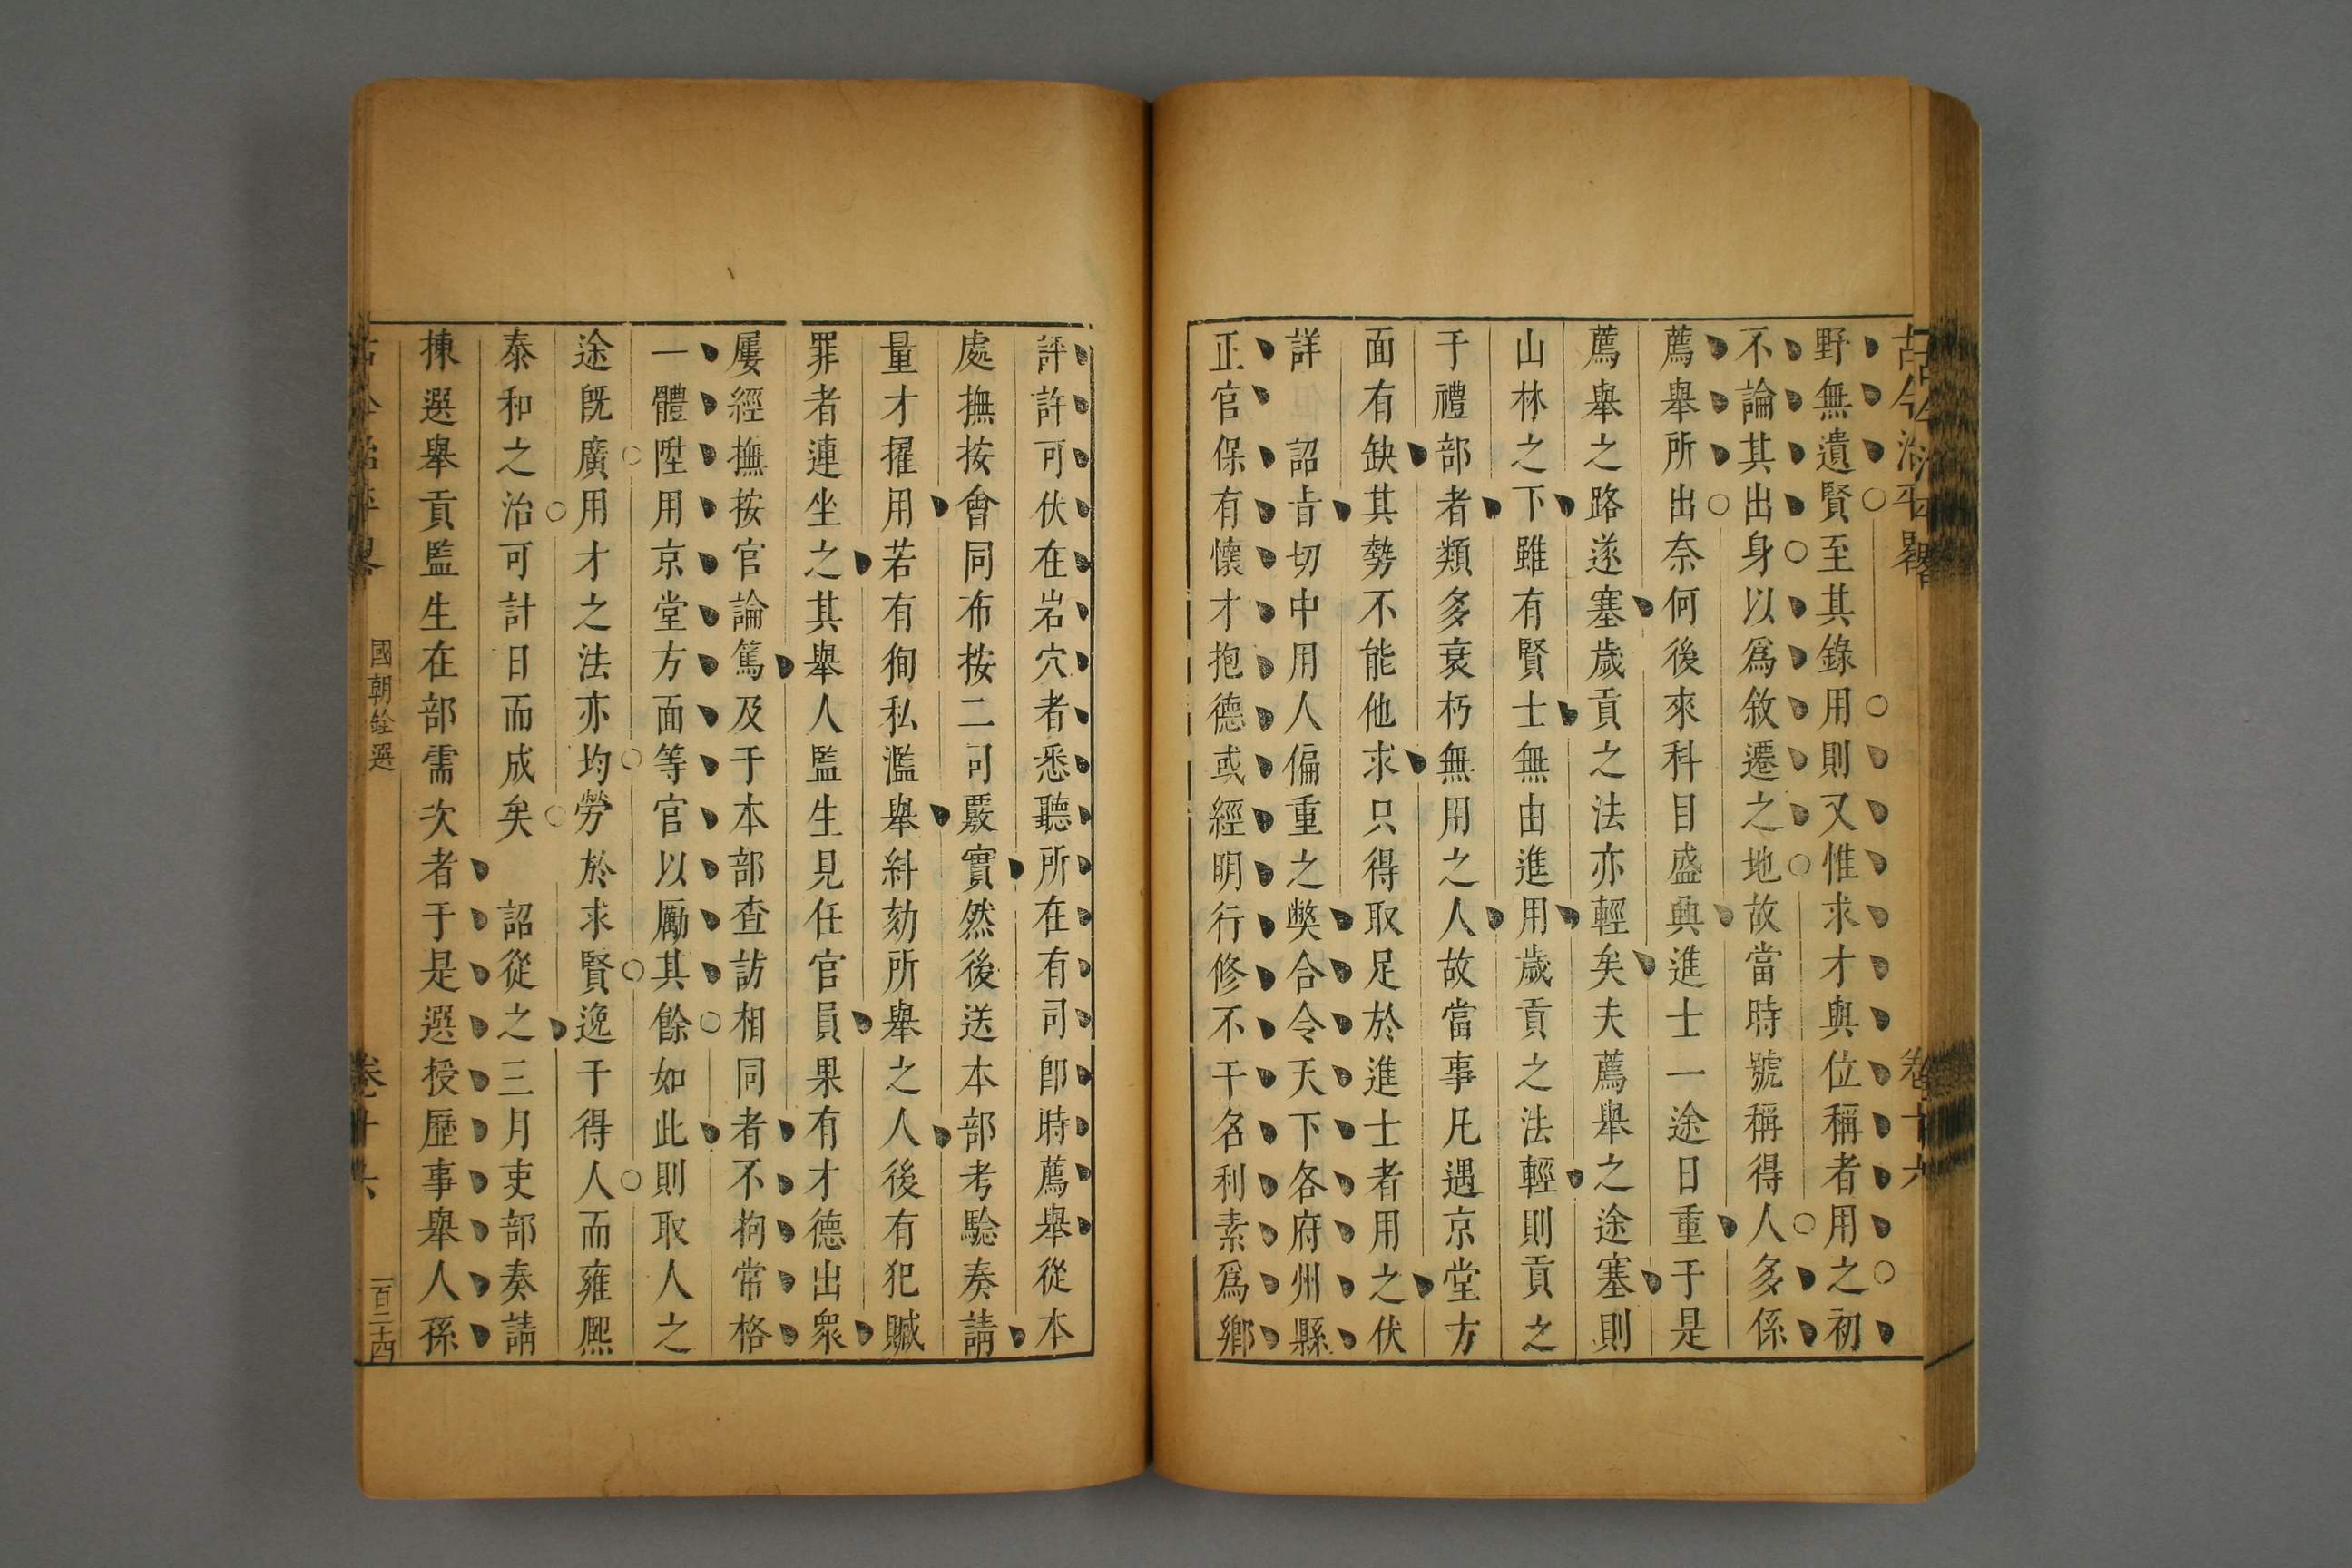 古今治平畧
卷十六
野無遺賢至其錄用則又惟求才與位稱者用之初
不論其出身以爲敘遷之地故當時號稱得人多係
薦舉所出奈何後來科目盛興進士一途日重于是
薦舉之路遂塞歲貢之法亦輕矣夫薦舉之途塞則
山林之下雖有賢士無由進用歲貢之法輕則貢之
于禮部者類多衰朽無用之人故當事凡遇京堂方
面有缺其勢不能他求只得取足於進士者用之伏
詳 詔旨切中用人偏重之弊合令天下各府州縣
正官保有懷才抱德或經明行修不干名利素爲鄉
評許可伏在岩穴者悉聽所在有司卽時薦舉從本
處撫按會同布按二司覈實然後送本部考驗奏請
量才擢用若有徇私濫舉糾劾所舉之人後有犯贓
罪者連坐之其舉人監生見任官員果有才德出眾
屢經撫按官論篤及于本部查訪相同者不拘常格
一體陞用京堂方面等官以勵其餘如此則取人之
途旣廣用才之法亦均勞於求賢逸于得人而雍熙
泰和之治可計日而成矣 詔從之三月吏部奏請
揀選舉貢監生在部需次者于是選授歷事舉人孫
國朝銓選
卷十六
一百二十四